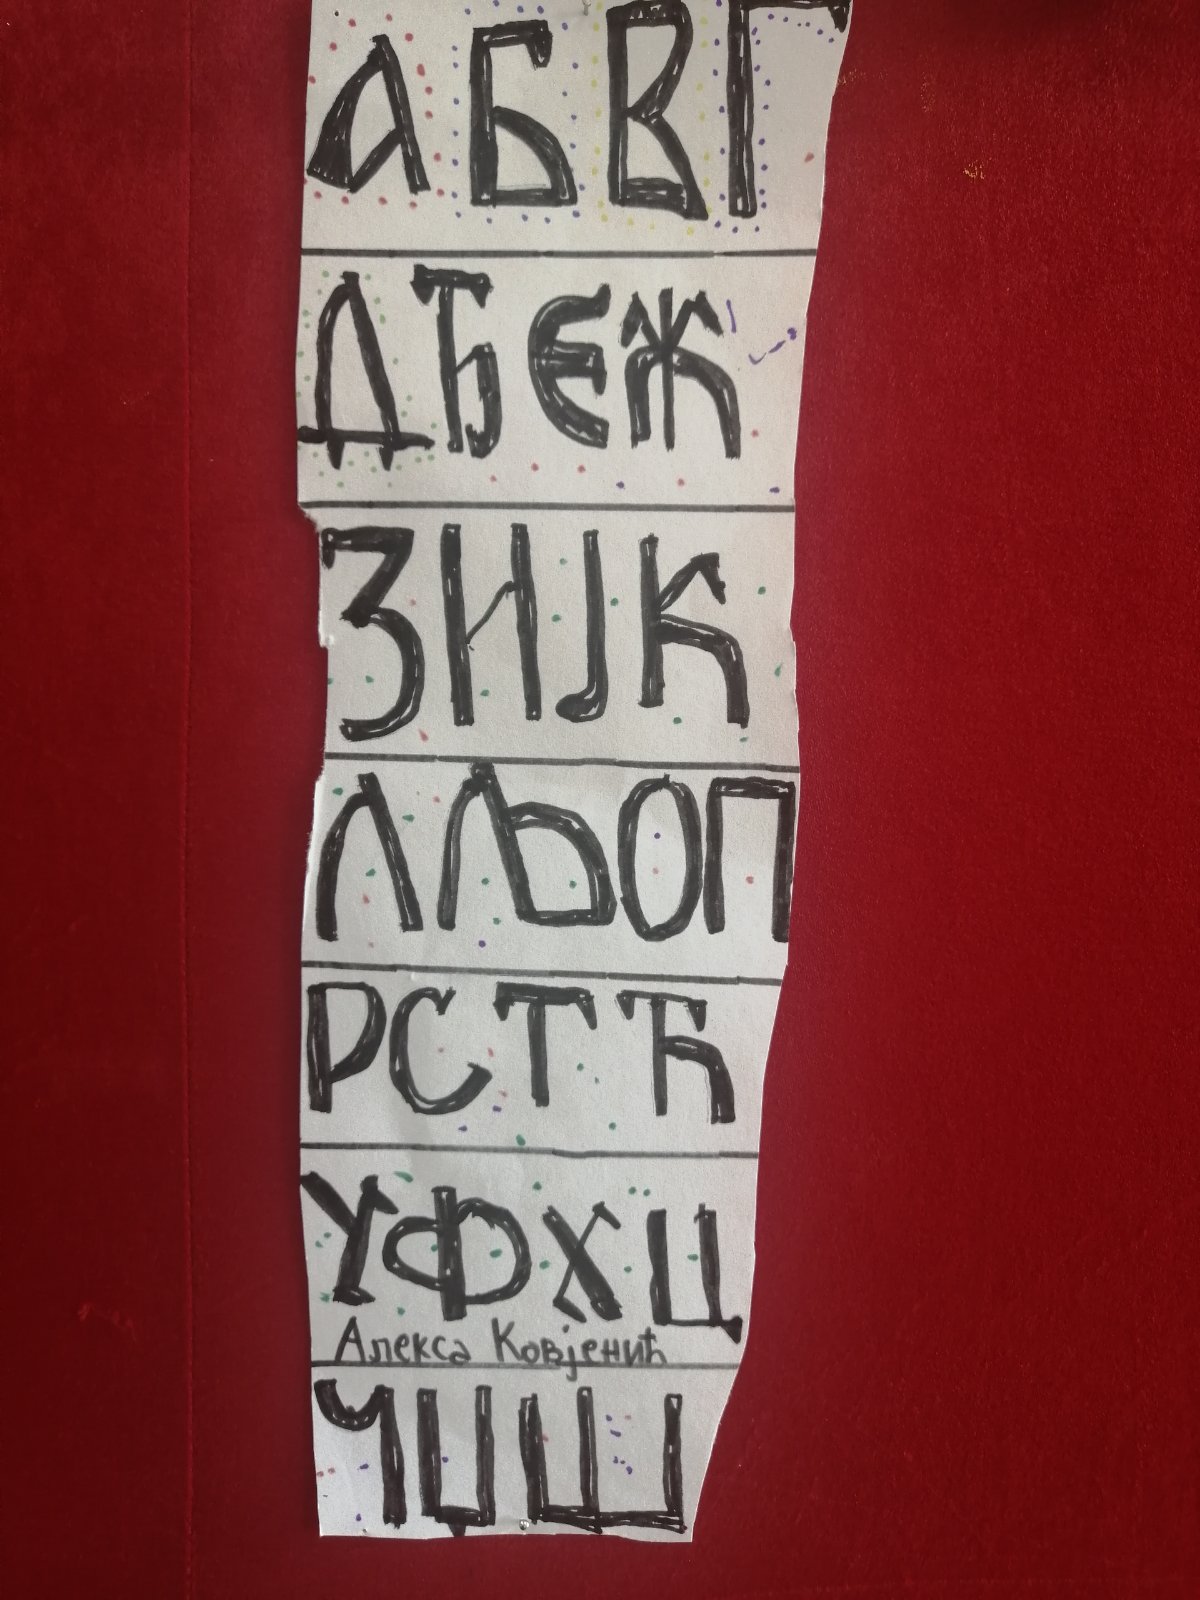 АБВГ
ДЂЕЖ
ЗИЈК
ЛЉОП
РСТЋ
УФХЦ
Алекса Ковјенић
ЧЏШ